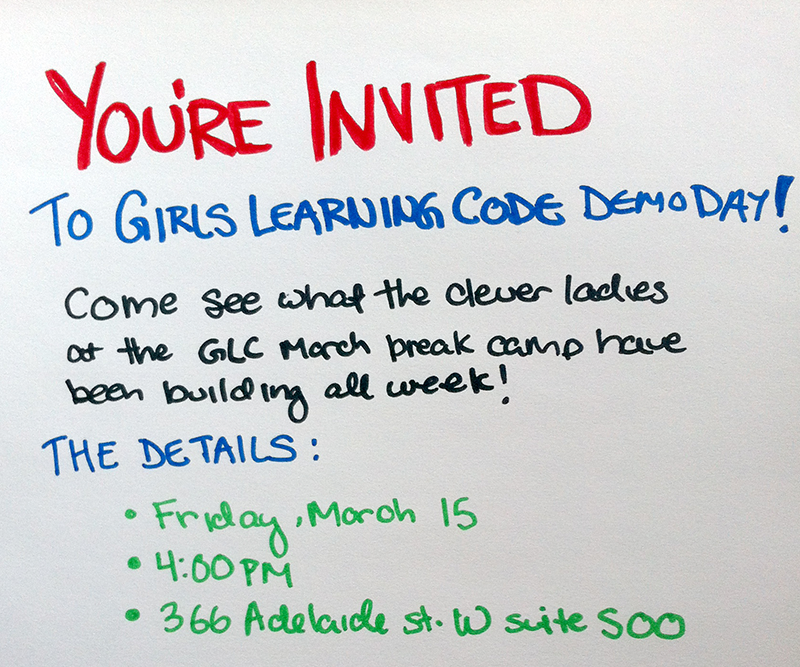 YOU'RE INVITED
TO GIRLS LEARNING CODE DEMO DAY!
Come see what the clever ladies
at the GLC March break camp have
been building all week!
THE DETAILS:
• Friday, March 15
• 4:00PM
• 366 Adelaide st. W suite 500